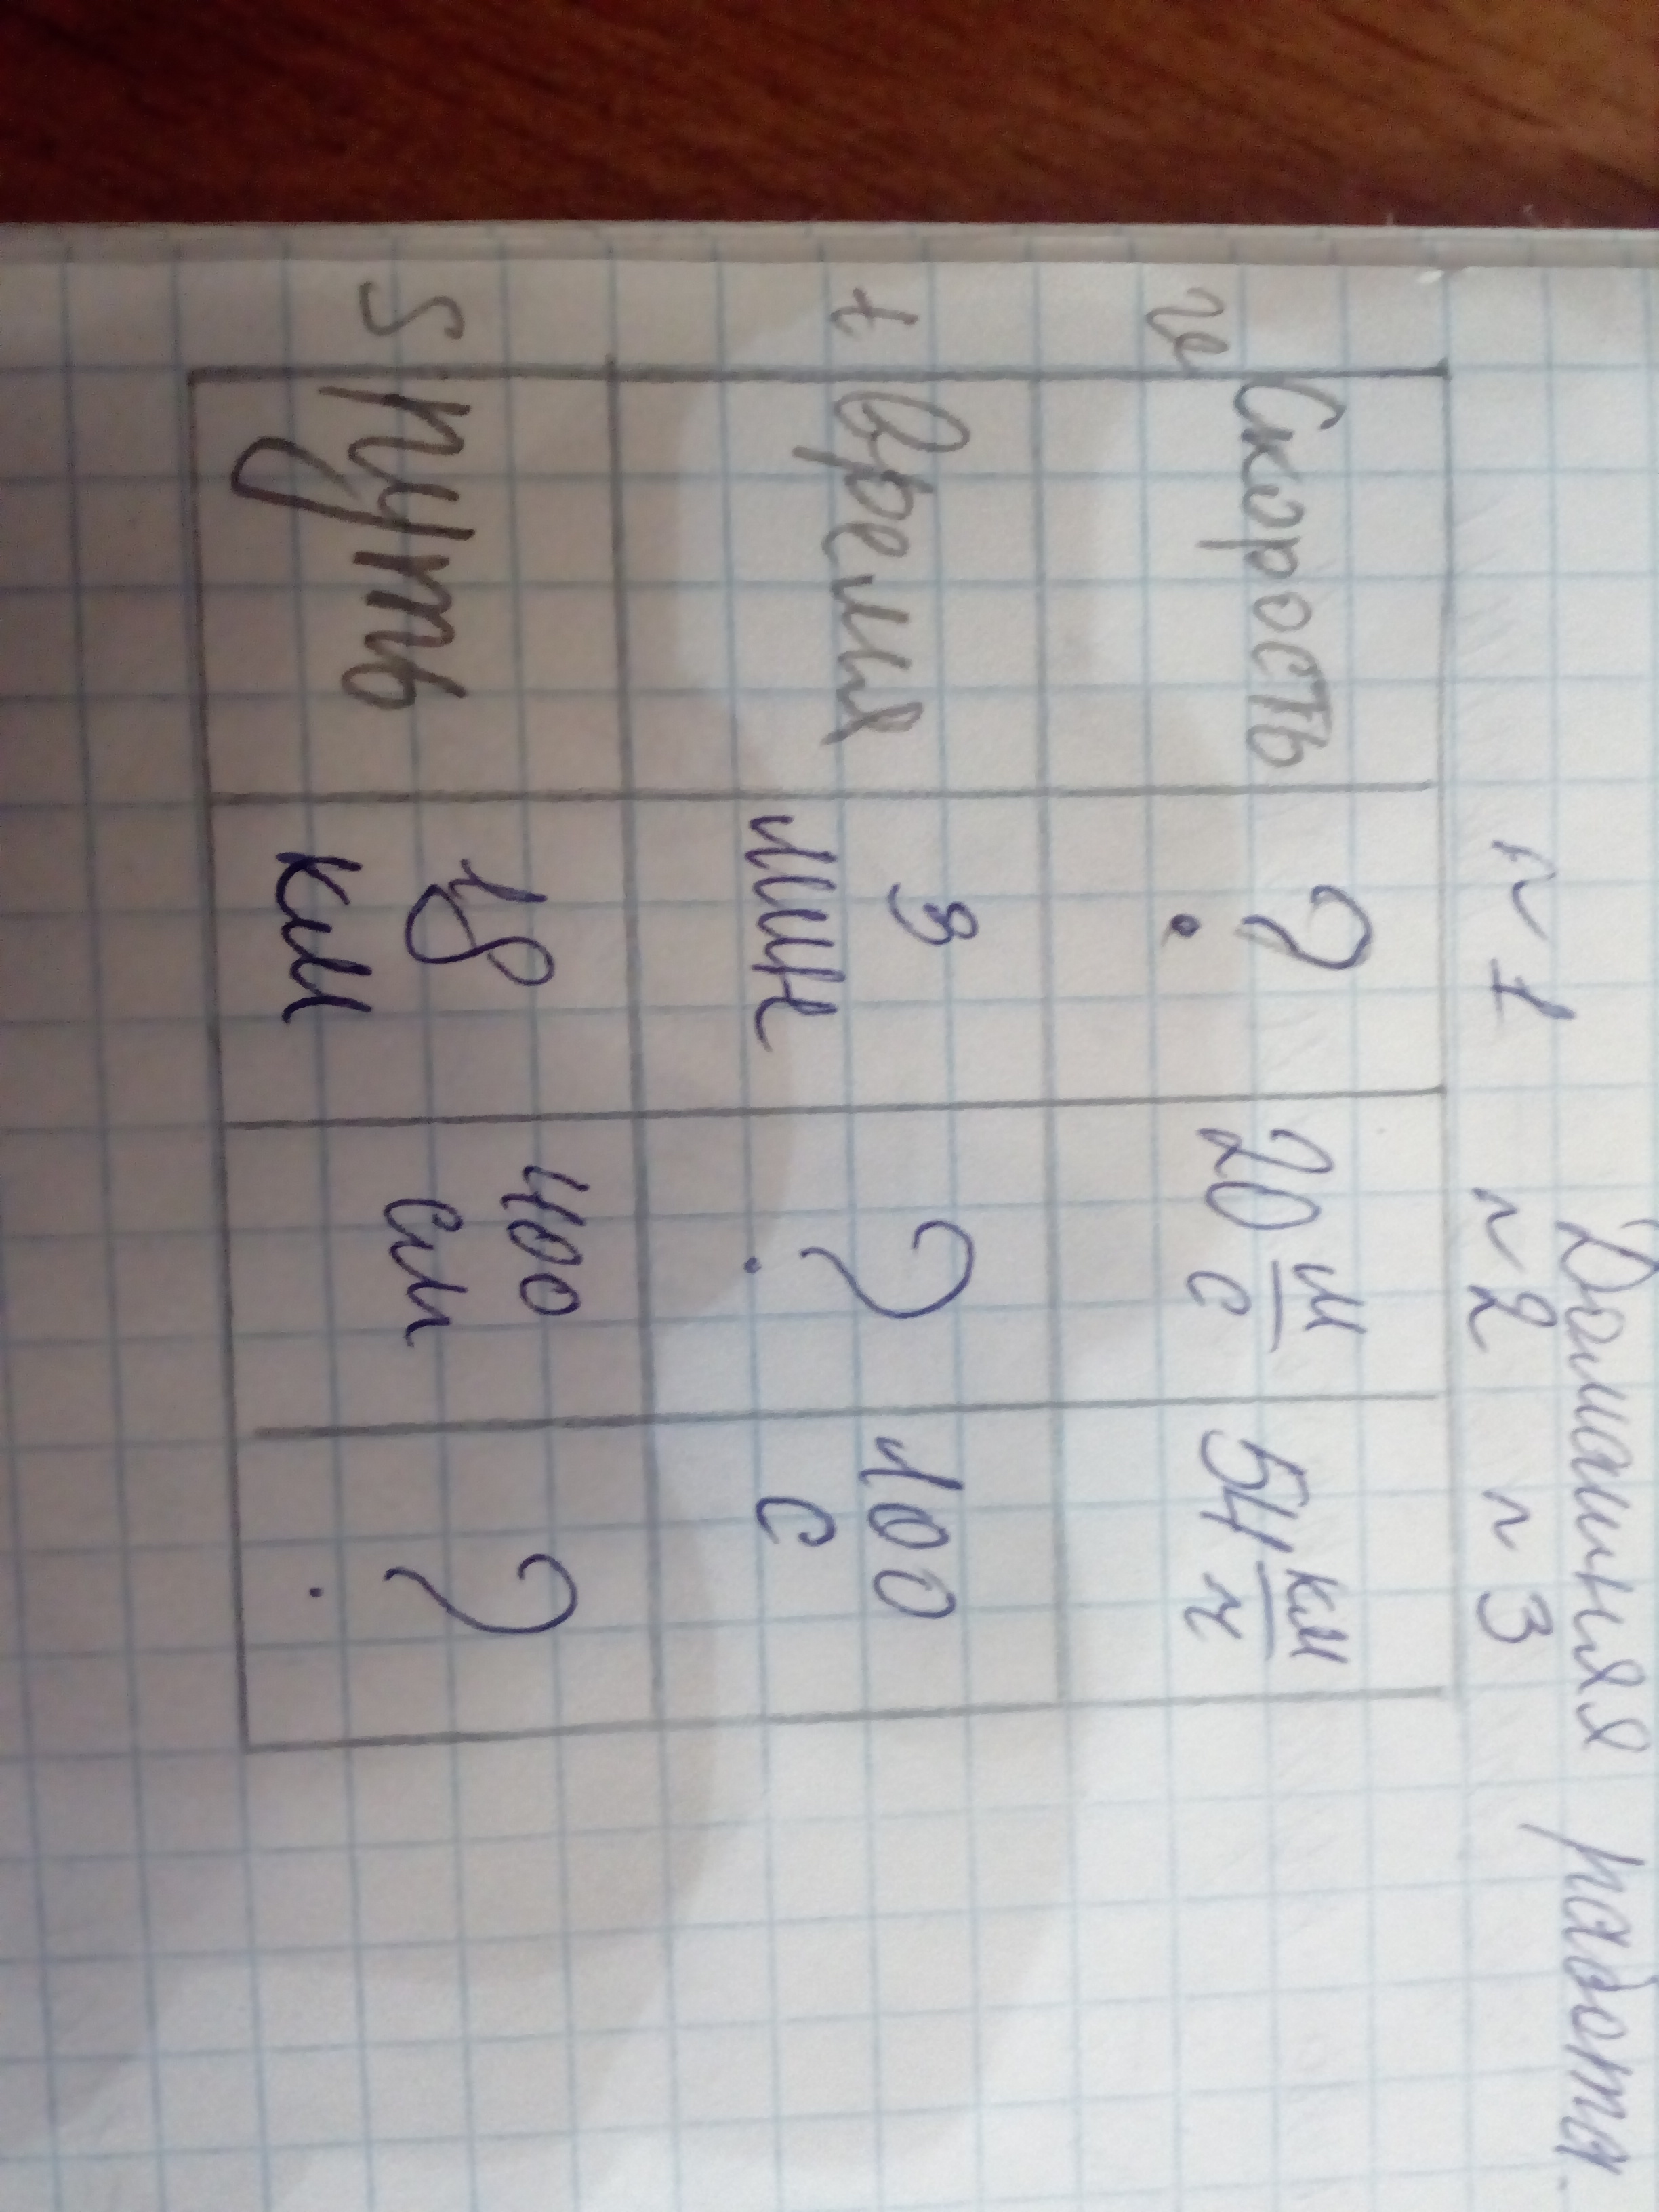 Домашняя работа.
n 1 n 2 n 3
v Скорость ? 20 м/с 54 км/ч
t Время 3 мин ? 100 с
S Путь 18 км 400 см ?